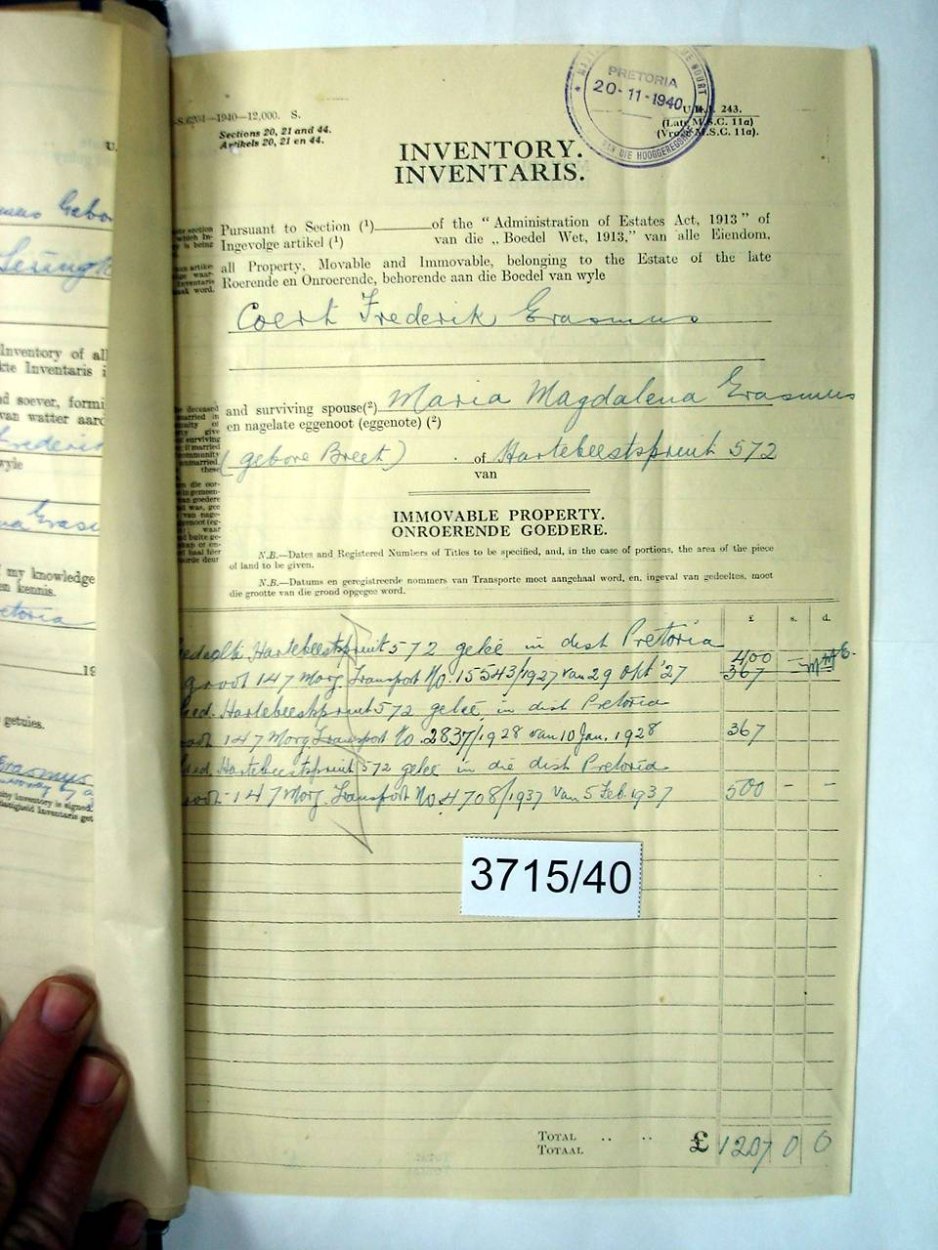 U.
Gebo
Inventory of all
kte Inventaris
nd soever, formi
van watter aard
wyle
my knowledge
en kennis.
etoria
19
getuies.
Erasmus
by inventory is signed
PRETORIA
20-11-1940
VAN DIE HOOGGEREGSHOF
1940—12,000. S.
Sections 20, 21 and 44.
Artikels 20, 21 en 44.
243.
(Late M.S.C. 11a)
M.S.C. 11a).
INVENTORY.
INVENTARIS.
Pursuant to Section (¹) of the "Administration of Estates Act, 1913" of
Ingevolge artikel (¹) van die „Boedel Wet, 1913," van alle Eiendom,
all Property, Movable and Immovable, belonging to the Estate of the late
Roerende en Onroerende, behorende aan die Boedel van wyle
Coert Frederik Erasmus
and surviving spouse(²) Maria Magdalena Erasmus
en nagelate eggenoot (eggenote) (²)
(gebore Breet) of Hartebeestspruit 572
van
IMMOVABLE PROPERTY.
ONROERENDE GOEDERE.
N.B.—Dates and Registered Numbers of Titles to be specified, and, in the case of portions, the area of the piece
of land to be given.
N.B.—Datums en geregistreerde nommers van Transporte moet aangehaal word, en, ingeval van gedeeltes, moet
die grootte van die grond opgegee word.
£ s. d.
Hartebeestspruit 572 geleë in dist Pretoria
400
groot 147 Morg Transport No. 15543/1927 van 29 Okt '27 367
Ged. Hartebeestspruit 572 geleë in dist Pretoria
147 Morg Transport No. 2837/1928 van 10 Jan. 1928 367
Ged. Hartebeestspruit 572 geleë in die dist Pretoria
147 Morg Transport No 4708/1937 van 5 Feb. 1937 500 - -
3715/40
TOTAL .. .. £ 1207 0 0
TOTAAL